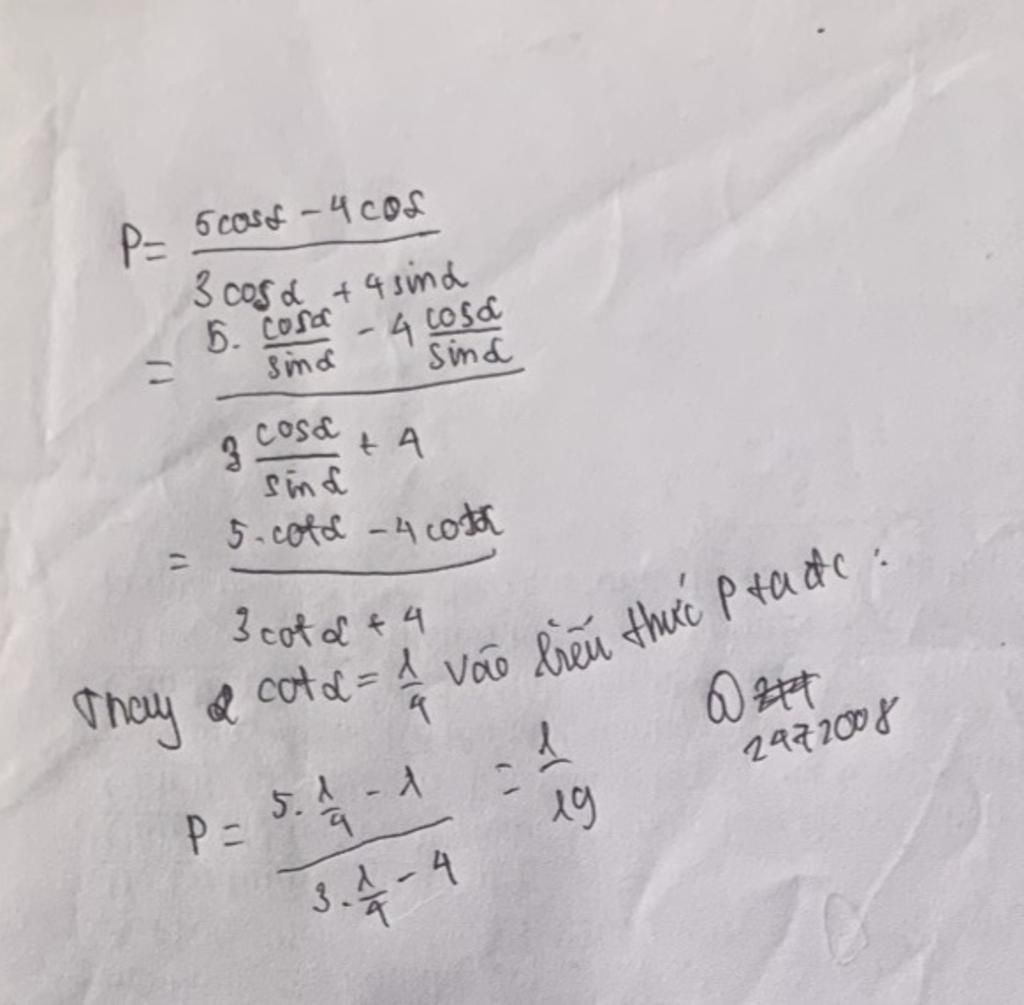 P = (5cosα - 4cosα) / (3cosα + 4sinα)
= (5. cosα/sinα - 4 cosα/sinα) / (3 cosα/sinα + 4)
= (5.cotα - 4cotα) / (3cotα + 4)
Thay cotα = 1/4 vào biểu thức P ta đc :
P = (5. 1/4 - 1) / (3. 1/4 - 4) = 1/19
2972008